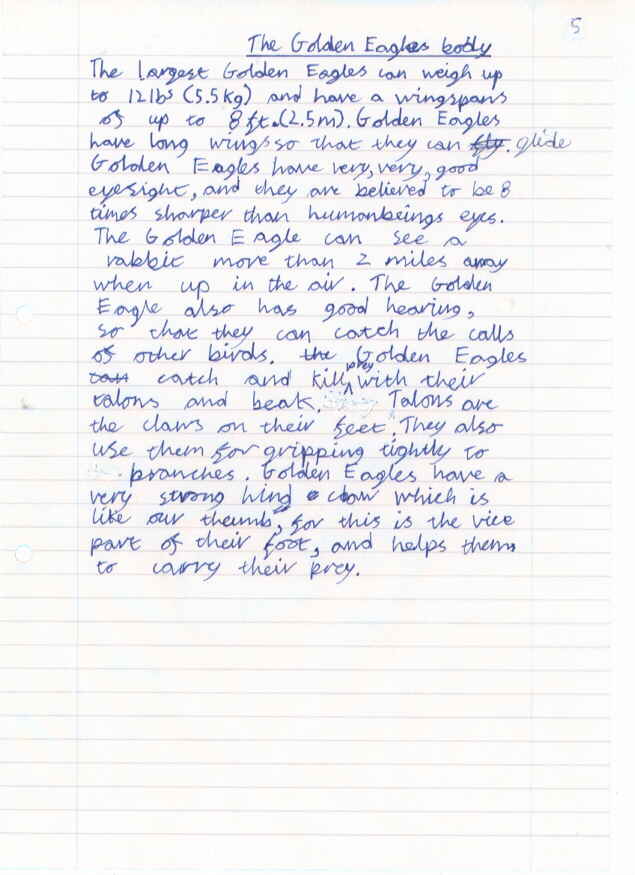 5
The Golden Eagles body
The largest Golden Eagles can weigh up
to 12lbs (5.5kg) and have a wingspans
of up to 8ft.(2.5m). Golden Eagles
have long wings so that they can fly. glide
Golden Eagles have very, very, good
eyesight, and they are believed to be 8
times sharper than humanbeings eyes.
The Golden Eagle can see a
rabbit more than 2 miles away
when up in the air. The Golden
Eagle also has good hearing,
so that they can catch the calls
of other birds. the Golden Eagles
catch and kill prey with their
talons and beak. Talons are
the claws on their feet. They also
use them for gripping tightly to
branches. Golden Eagles have a
very strong hind claw which is
like our thumb, for this is the vice
part of their foot, and helps them
to carry their prey.